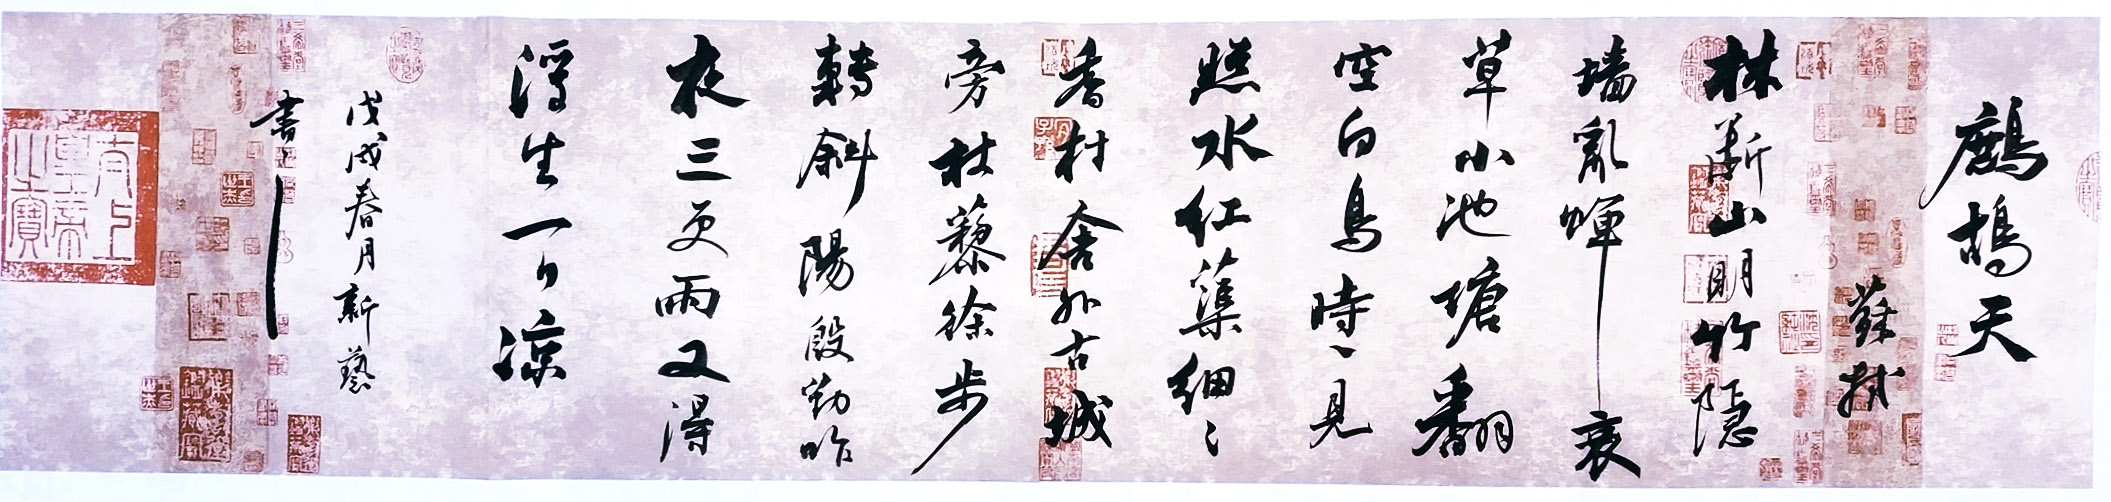 鷓鴣天
蘇軾
林斷山明竹隐
墙亂蟬衰
草小池塘翻
空白鳥時〻見
照水红蕖细〻
香村舍外古城
旁杖藜徐步
轉斜陽殷勤昨
夜三更雨又得
浮生一日凉
戊戌春月新藝
書
太上
皇帝
之寶